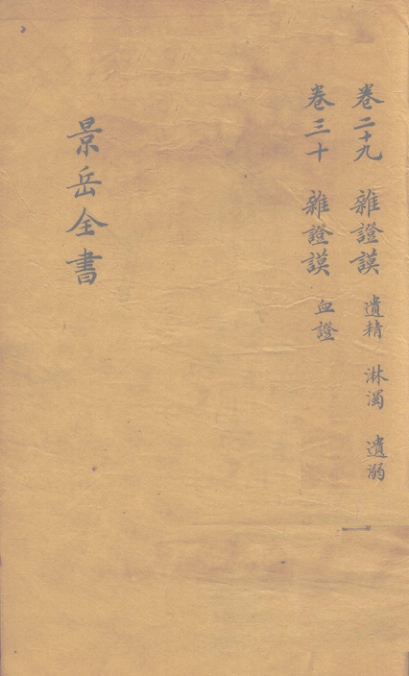 卷二十九 雜證謨 遺精 淋濁 遺溺
卷三十 雜證謨 血證
景岳全書